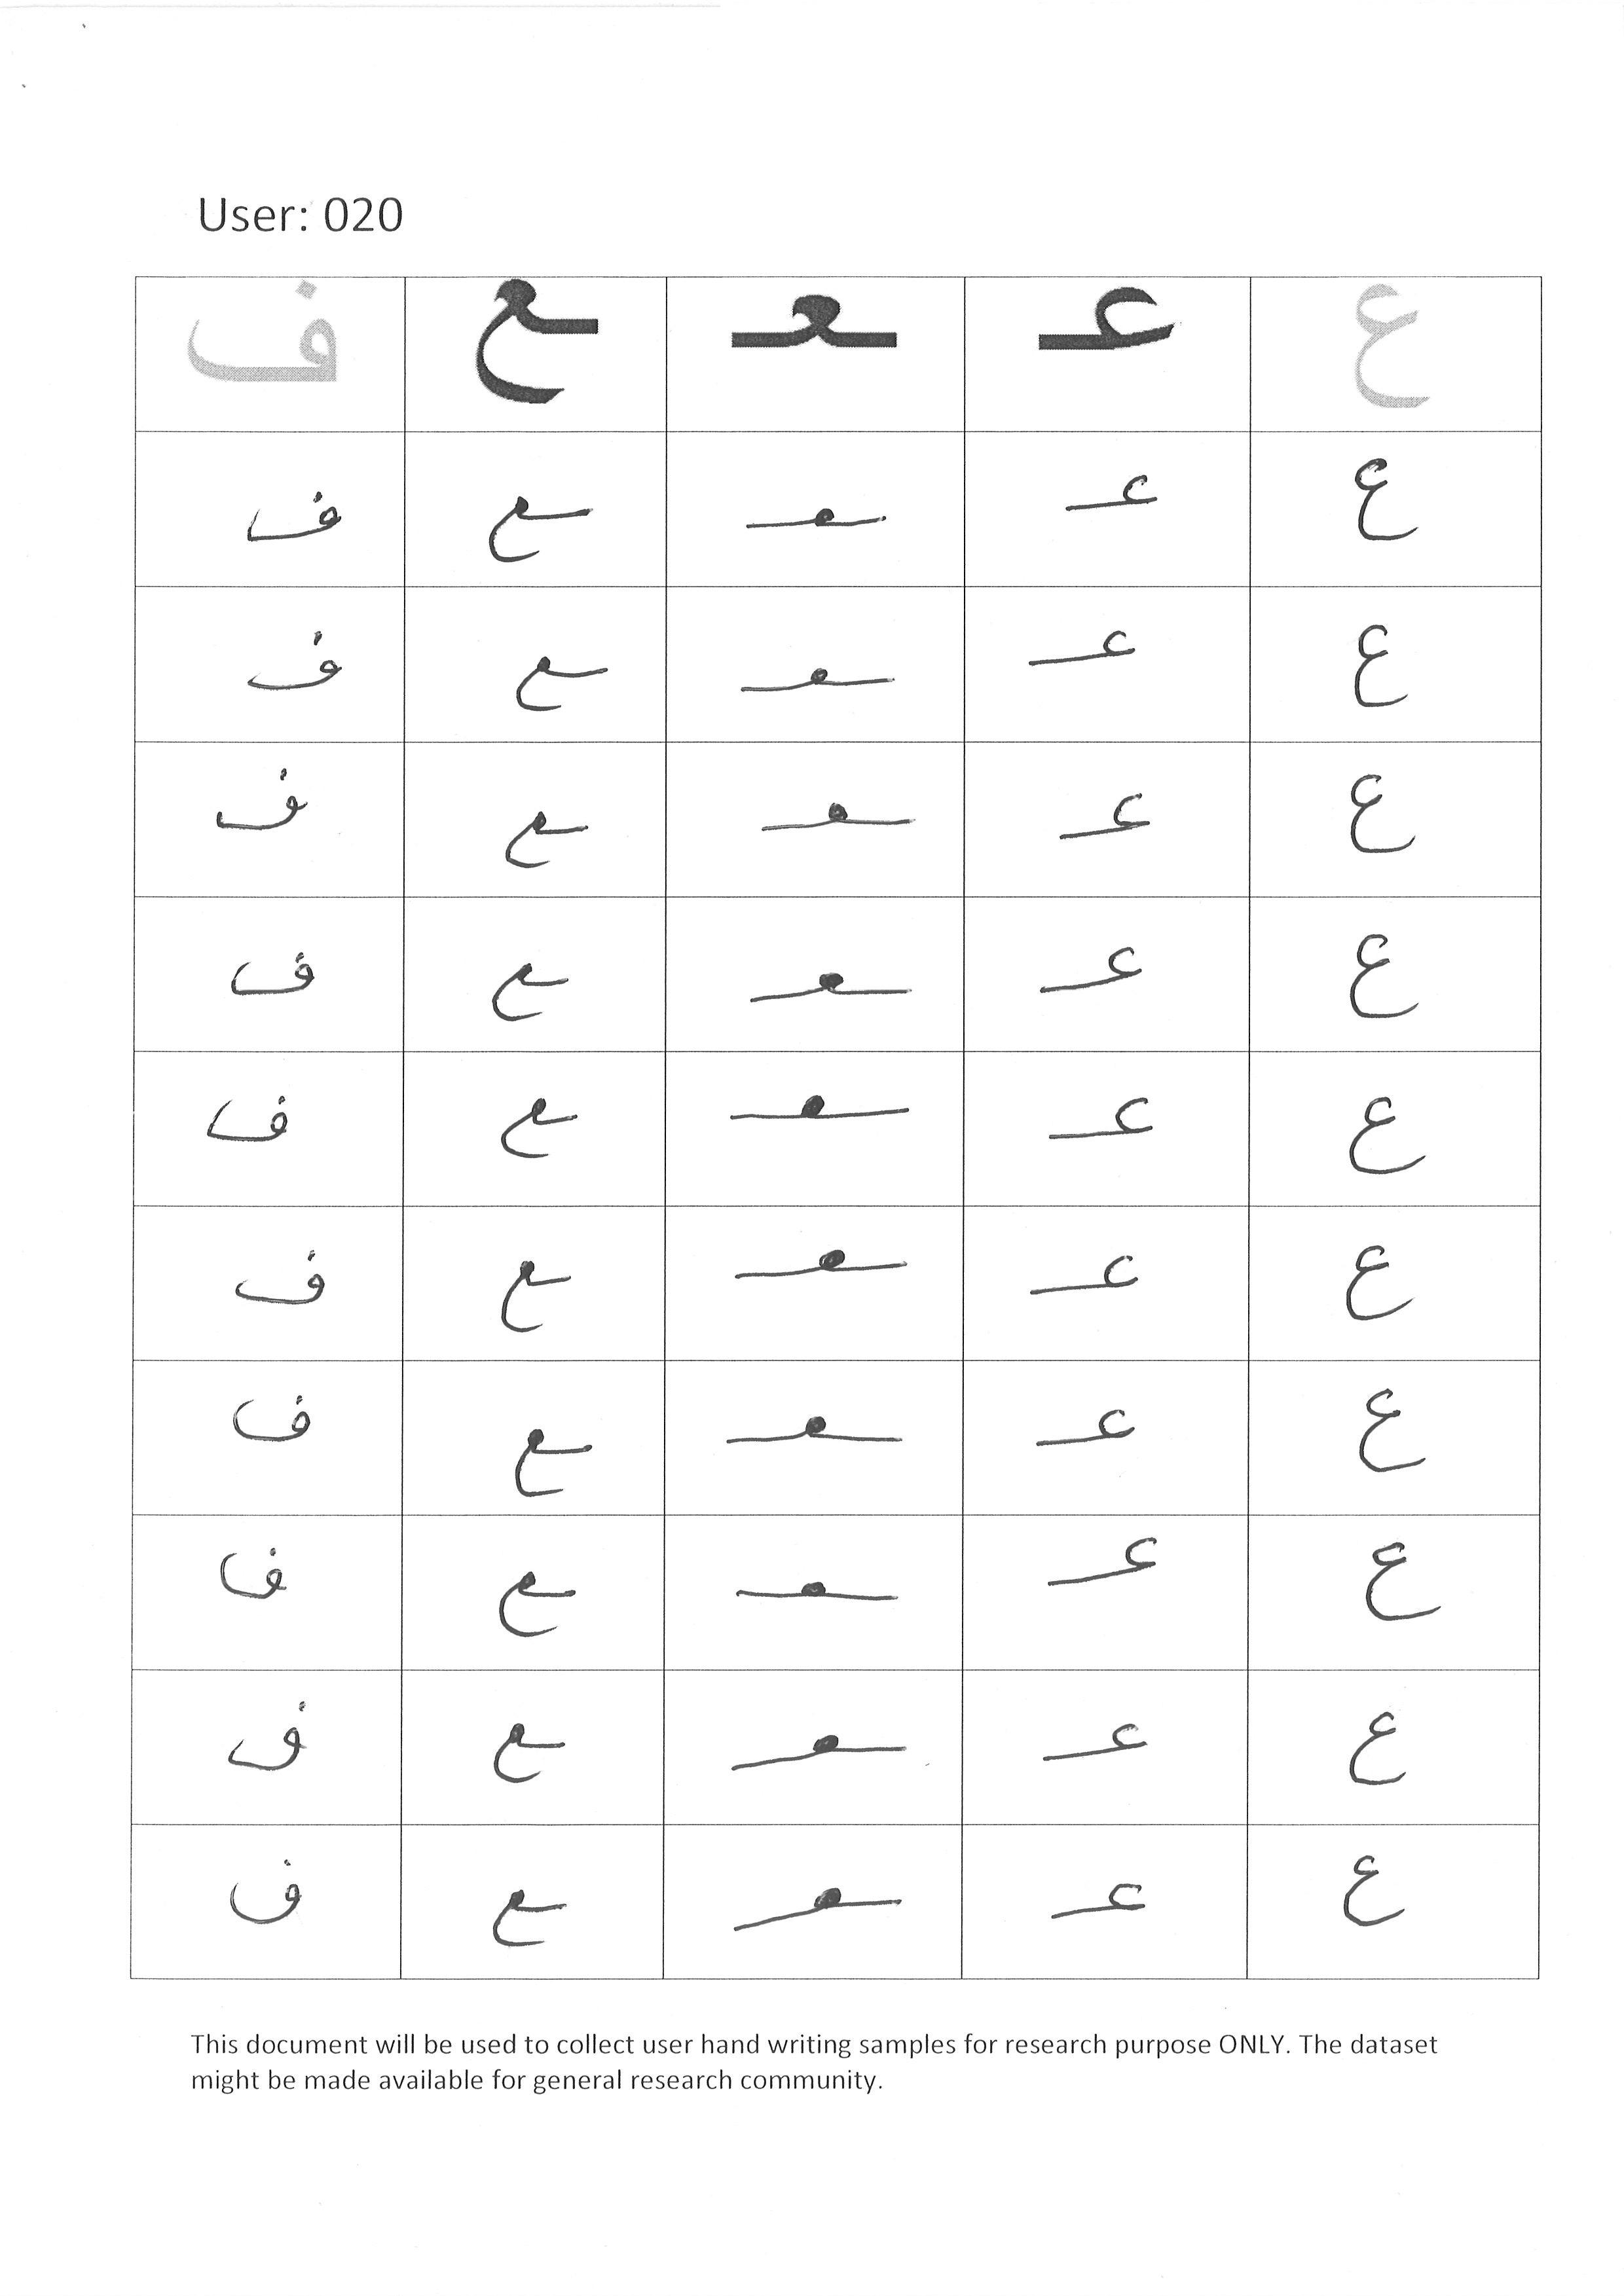 User: 020
ع عـ ـعـ ـع ف
ع عـ ـعـ ـع ف
ع عـ ـعـ ـع ف
ع عـ ـعـ ـع ف
ع عـ ـعـ ـع ف
ع عـ ـعـ ـع ف
ع عـ ـعـ ـع ف
ع عـ ـعـ ـع ف
ع عـ ـعـ ـع ف
ع عـ ـعـ ـع ف
ع عـ ـعـ ـع ف
This document will be used to collect user hand writing samples for research purpose ONLY. The dataset
might be made available for general research community.